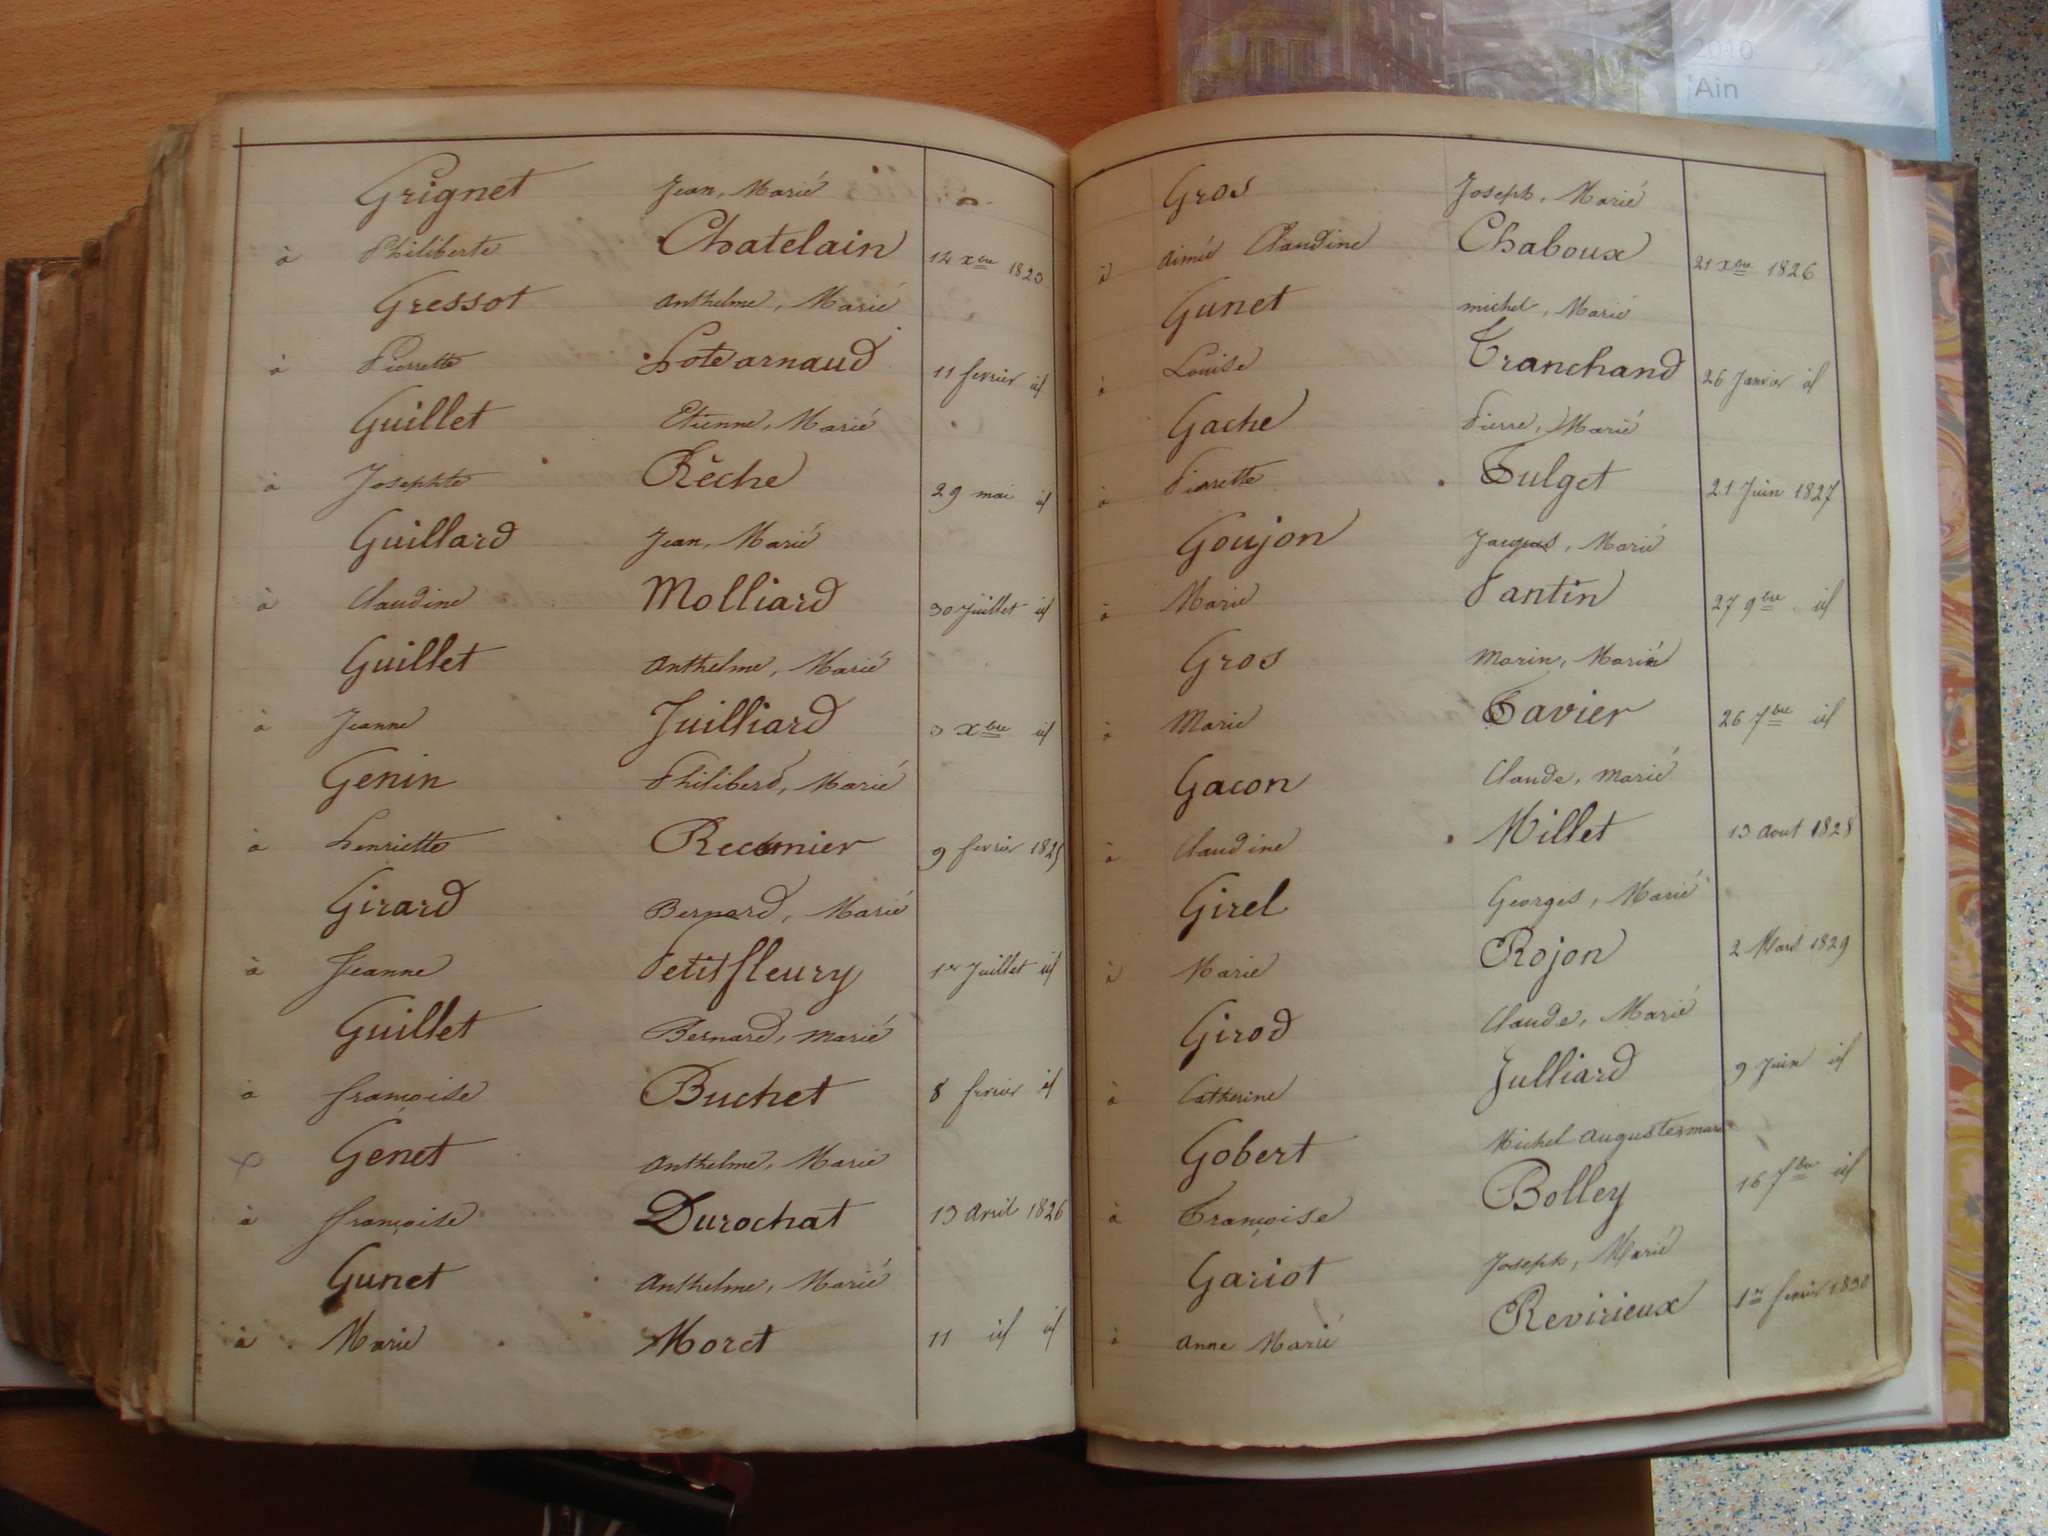 2010
Ain
Grignet Jean, Marié
à Philiberte Chatelain 14 Xbre 1823
Gressot Anthelme, Marié
à Pierrette arnaud 11 fevrier id
Guillet Etienne, Marié
à Josephte Rêche 29 mai id
Guillard Jean, Marié
à Claudine Molliard 30 Juillet id
Guillet Anthelme, Marié
à Jeanne Juilliard 3 Xbre id
Genin Philiberd, Marié
à henriette Recamier 9 fevrier 1825
Girard Bernard, Marié
à Jeanne Petitfleury 1er Juillet id
Guillet Bernard, marié
à françoise Buchet 8 fevrier id
Genet Anthelme, Marié
à françoise Durochat 13 Avril 1826
Gunet Anthelme, Marié
à Marie Moret 11 id id
Gros Joseph, Marié
à Aimée Claudine Chaboux 21 Xbre 1826
Gunet michel, Marié
à Louise Tranchand 26 Janvier id
Gache Pierre, Marié
à Pierrette Fulget 21 Juin 1827
Goujon Jacques, Marié
à Marie Pantin 27 9bre id
Gros Marin, Marié
à Marie Tavier 26 7bre id
Gacon Claude, marié
à Claudine Millet 13 Aout 1828
Girel Georges, Marié
à Marie Rojon 2 Mars 1829
Girod Claude, Marié
à Catherine Julliard 9 Juin id
Gobert Michel Auguste, marié
à Françoise Bolley 16 7bre id
Gariot Joseph, Marié
à Anne Marie Revirieux 1er fevrier 1830